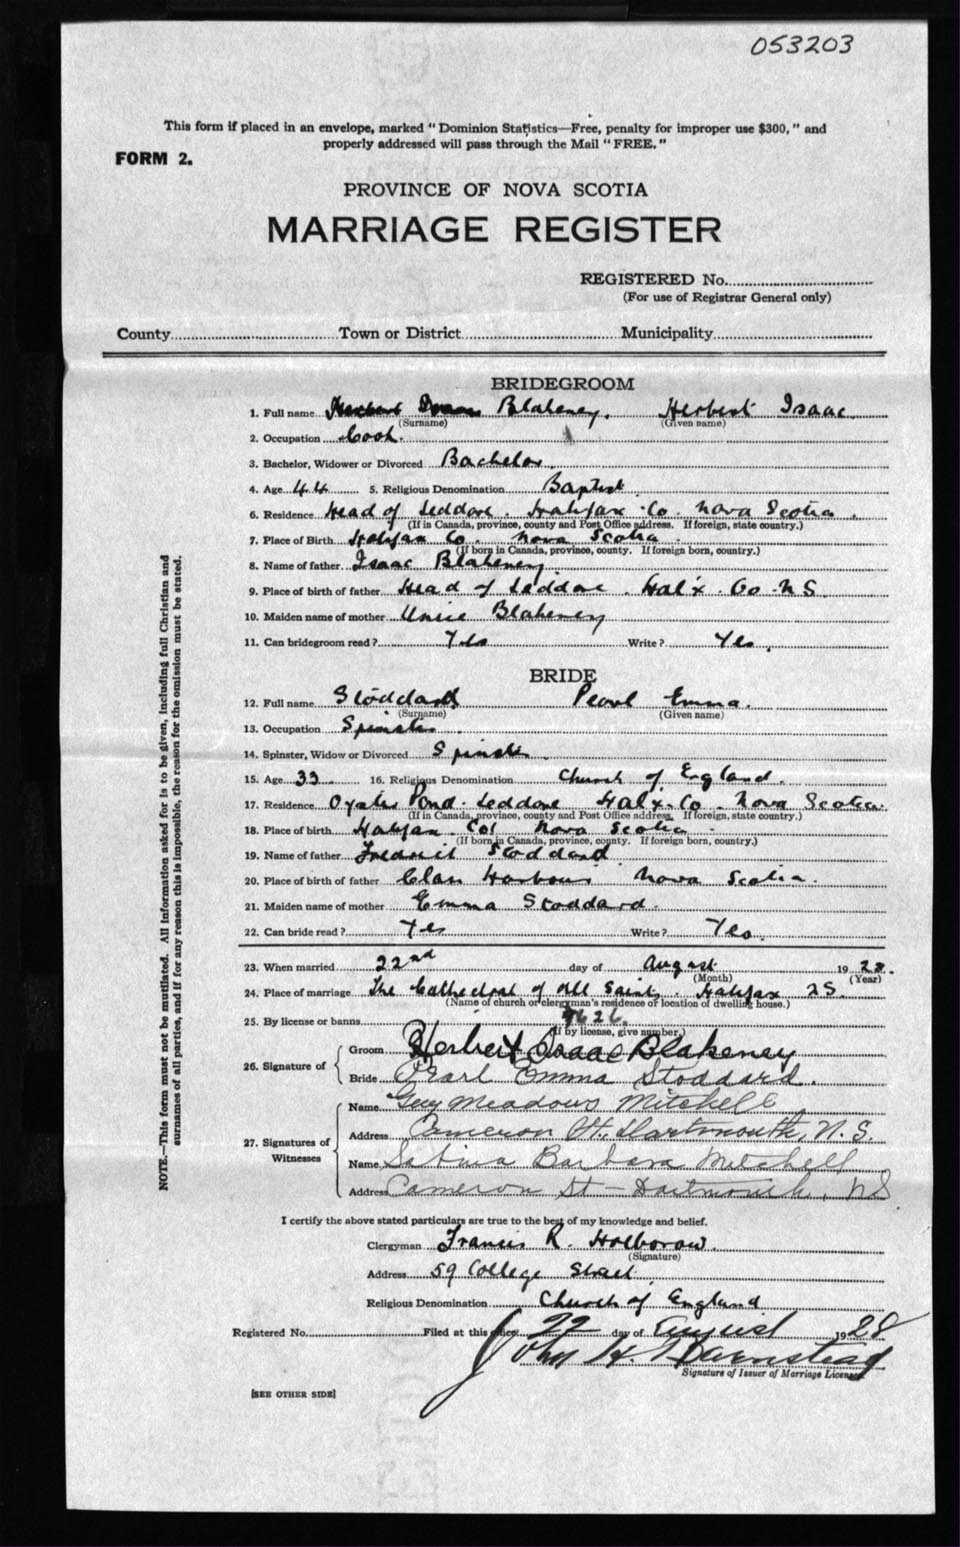 053203
This form if placed in an envelope, marked "Dominion Statistics—Free, penalty for improper use $300," and
properly addressed will pass through the Mail "FREE."
FORM 2.
PROVINCE OF NOVA SCOTIA
MARRIAGE REGISTER
REGISTERED No.
(For use of Registrar General only)
County Town or District Municipality
BRIDEGROOM
1. Full name Herbert Isaac Blakeney. Herbert Isaac
(Surname) (Given name)
2. Occupation Cook.
3. Bachelor, Widower or Divorced Bachelor
4. Age 44 5. Religious Denomination Baptist
6. Residence Head of Jeddore. Halifax Co. Nova Scotia.
(If in Canada, province, county and Post Office address. If foreign, state country.)
7. Place of Birth Halifax Co. Nova Scotia
(If born in Canada, province, county. If foreign born, country.)
8. Name of father Isaac Blakeney.
9. Place of birth of father Head of Jeddore. Hal'x. Co. N S
10. Maiden name of mother Blakeney
11. Can bridegroom read? Yes Write? Yes.
BRIDE
12. Full name Stoddard Pearl Emma.
(Surname) (Given name)
13. Occupation Spinster
14. Spinster, Widow or Divorced Spinster.
15. Age 33 16. Religious Denomination Church of England.
17. Residence Oyster Pond. Jeddore Hal'x. Co. Nova Scotia.
(If in Canada, province, county and Post Office address. If foreign, state country.)
18. Place of birth Halifax. Co. Nova Scotia
(If born in Canada, province, county. If foreign born, country.)
19. Name of father Stoddard
20. Place of birth of father Clam Harbour Nova Scotia.
21. Maiden name of mother Emma Stoddard.
22. Can bride read? Yes Write? Yes.
23. When married 22nd day of August 1928.
(Month) (Year)
24. Place of marriage The Cathedral of All Saints. Halifax NS.
(Name of church or clergyman's residence or location of dwelling house.)
25. By license or banns 9626
(If by license, give number.)
26. Signature of
Groom Herbert Isaac Blakeney
Bride Pearl Emma Stoddard.
27. Signatures of Witnesses
Name Guy Meadows Mitchell
Address Cameron St., Dartmouth, N.S.
Name Sabina Barbara Mitchell
Address Cameron St - Dartmouth, NS
I certify the above stated particulars are true to the best of my knowledge and belief.
Clergyman Francis R. Holborow.
(Signature)
Address 59 College Street.
Religious Denomination Church of England
Registered No. Filed at this office 22 day of August 1928
John H. Barnstead
Signature of Issuer of Marriage Licenses
[SEE OTHER SIDE]
NOTE.—This form must not be mutilated. All information asked for is to be given, including full Christian and
surnames of all parties, and if for any reason this is impossible, the reason for the omission must be stated.